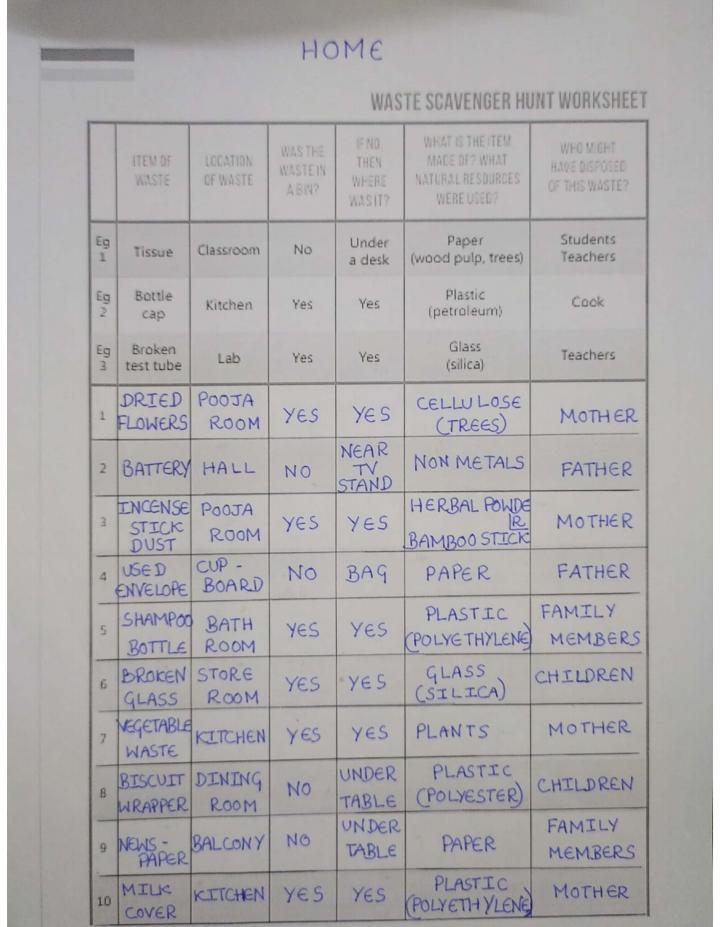 HOME
WASTE SCAVENGER HUNT WORKSHEET
ITEM OF WASTE | LOCATION OF WASTE | WAS THE WASTE IN A BIN? | IF NO, THEN WHERE WAS IT? | WHAT IS THE ITEM MADE OF? WHAT NATURAL RESOURCES WERE USED? | WHO MIGHT HAVE DISPOSED OF THIS WASTE?
Eg 1 | Tissue | Classroom | No | Under a desk | Paper (wood pulp, trees) | Students Teachers
Eg 2 | Bottle cap | Kitchen | Yes | Yes | Plastic (petroleum) | Cook
Eg 3 | Broken test tube | Lab | Yes | Yes | Glass (silica) | Teachers
1 | DRIED FLOWERS | POOJA ROOM | YES | YES | CELLULOSE (TREES) | MOTHER
2 | BATTERY | HALL | NO | NEAR TV STAND | NON METALS | FATHER
3 | INCENSE STICK DUST | POOJA ROOM | YES | YES | HERBAL POWDER BAMBOO STICK | MOTHER
4 | USED ENVELOPE | CUP-BOARD | NO | BAG | PAPER | FATHER
5 | SHAMPOO BOTTLE | BATH ROOM | YES | YES | PLASTIC (POLYETHYLENE) | FAMILY MEMBERS
6 | BROKEN GLASS | STORE ROOM | YES | YES | GLASS (SILICA) | CHILDREN
7 | VEGETABLE WASTE | KITCHEN | YES | YES | PLANTS | MOTHER
8 | BISCUIT WRAPPER | DINING ROOM | NO | UNDER TABLE | PLASTIC (POLYESTER) | CHILDREN
9 | NEWS-PAPER | BALCONY | NO | UNDER TABLE | PAPER | FAMILY MEMBERS
10 | MILK COVER | KITCHEN | YES | YES | PLASTIC (POLYETHYLENE) | MOTHER